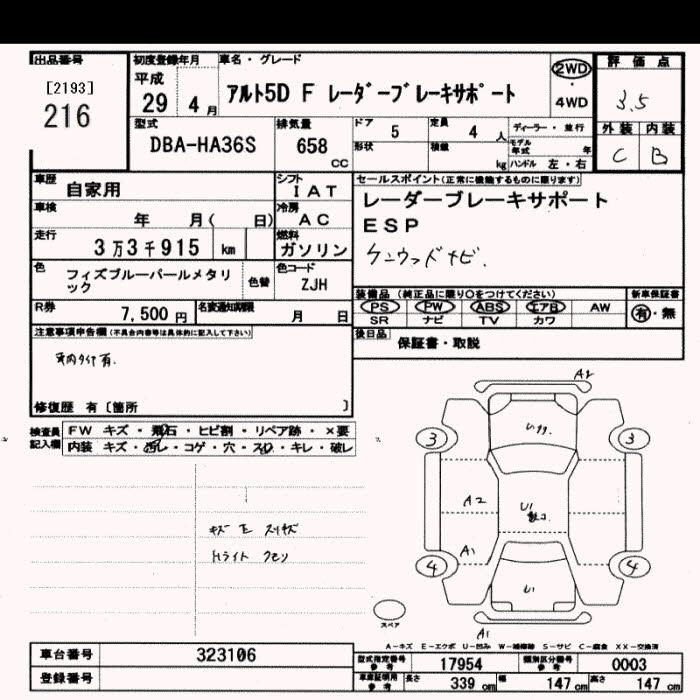 出品番号
[2193]
216
初度登録年月
平成
29 年 4 月
車名・グレード
アルト5D F レーダーブレーキサポート
2WD
・
4WD
評価点
3.5
外装 内装
C B
型式
DBA-HA36S
排気量
658 cc
ドア 5
定員 4 人
ディーラー・並行
形状
積載 kg
モデル年式 年
ハンドル 左・右
車歴 自家用
シフト IAT
車検 年 月( 日)
冷房 AC
走行 3万3千915 km
燃料 ガソリン
色 フィズブルーパールメタリック
色替
色コード ZJH
R券 7,500円
名変通知期限 月 日
セールスポイント(正常に機能するものに限ります)
レーダーブレーキサポート
ESP
ケンウッドナビ.
装備品(純正品に限り○をつけてください)
新車保証書
PS PW ABS エアB AW
SR ナビ TV カワ
有・無
後日品 保証書・取説
注意事項申告欄(不具合内容等は具体的に記入して下さい)
車内タイヤ有.
修復歴 有〔箇所 〕
検査員記入欄
FW キズ・飛石・ヒビ割・リペア跡・×要
内装 キズ・汚レ・コゲ・穴・スレ・キレ・破レ
キズ
Hライト
A2
3 3
A2
U1
A1
4 4
U1
スペア
A1
A-キズ E-エクボ U-凹み W-補修跡 S-サビ C-腐食 XX-交換済
車台番号 323106
登録番号
型式指定番号 参考 17954
類別区分番号 参考 0003
車庫証明用 参考 長さ 339 cm 幅 147 cm 高さ 147 cm